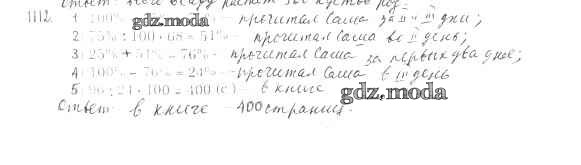 Ответ:
1112. 1) 100% gdz.moda - прочитал Саша за II и III дни;
2) 75% : 100 · 68 = 51% - прочитал Саша во II день;
3) 25% + 51% = 76% - прочитал Саша за первых два дня;
4) 100% - 76% = 24% - прочитал Саша в III день
5) 96 : 24 · 100 = 400 (с) - в книге gdz.moda
Ответ: в книге 400 страниц.